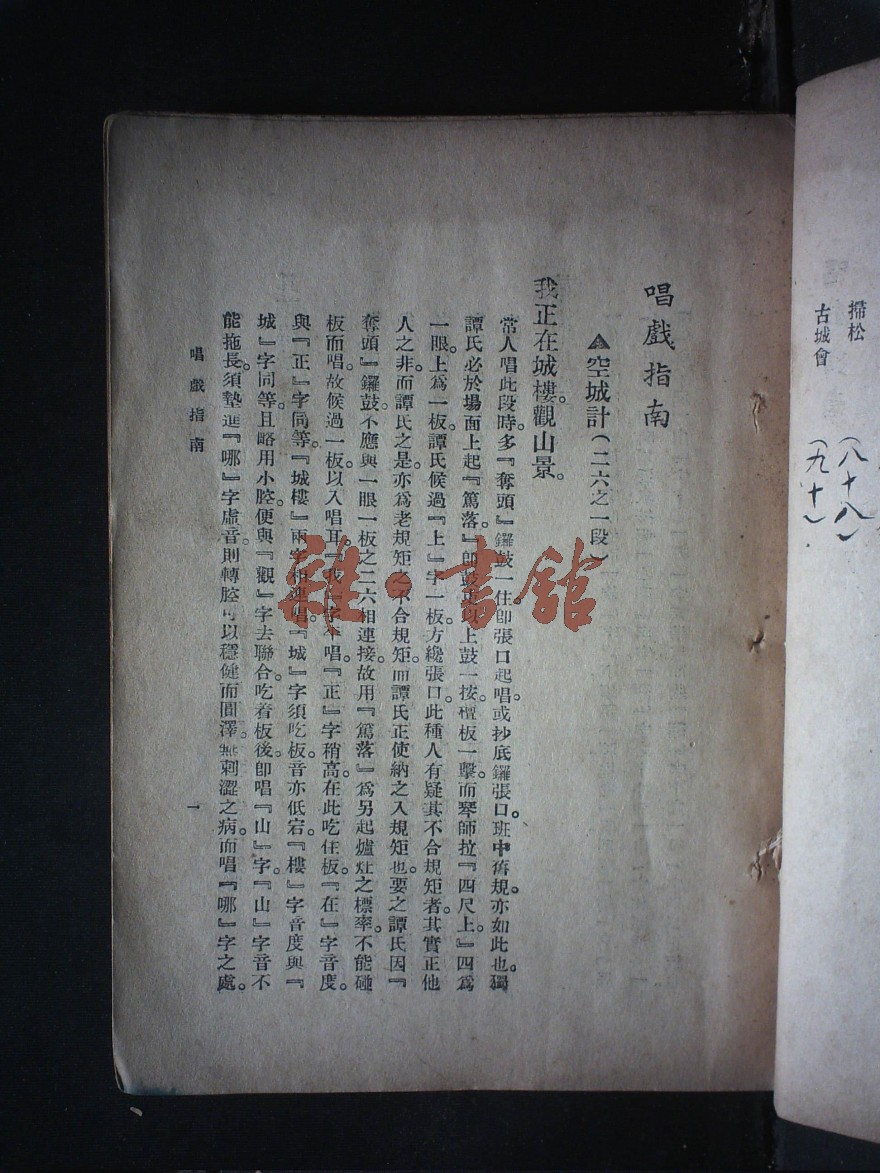 掃松 (八十八)
古城會 (九十)
唱戲指南
▲空城計(二六之一段)
我正在城樓。觀山景。
常人唱此段時多『奪頭』鑼鼓一住卽張口起唱。或抄底鑼張口。班中舊規。亦如此也。獨
譚氏必於場面上起『篤落。』卽鼓 以上鼓一按。檀板一擊。而琴師拉『四尺上。』四爲
一眼。上爲一板。譚氏候過『上』字一板。方纔張口。此種人有疑其不合規矩者。其實正他
人之非。而譚氏之是。亦爲老規矩之不合規矩。而譚氏正使納之入規矩也。要之譚氏因『
奪頭』鑼鼓。不應與一眼一板之二六相連接。故用『篤落』爲另起爐灶之標率。不能碰
板而唱。故候過一板。以入唱耳。『我』字本唱。『正』字稍高。在此吃住板。『在』字音度。
與『正』字同等。『城樓』兩字相連唱。『城』字須吃板。音亦低宕。『樓』字音度與『
城』字同等。且略用小腔。便與『觀』字去聯合。吃着板後。卽唱『山』字。『山』字音不
能拖長。須墊進『哪』字虛音。則轉腔可以穩健而圓澤。無刺澀之病。而唱『哪』字之處。
唱戲指南
一
雜·書館